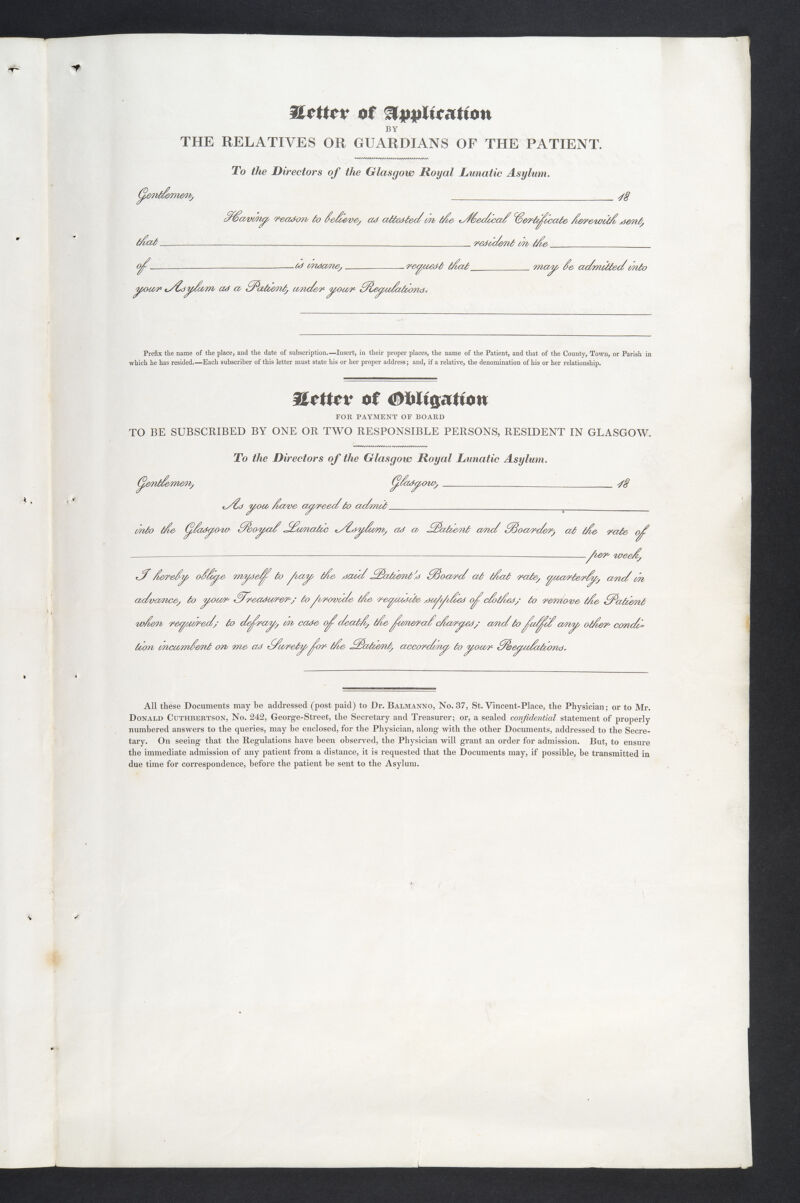 Letter of Application
BY
THE RELATIVES OR GUARDIANS OF THE PATIENT.
To the Directors of the Glasgow Royal Lunatic Asylum.
Gentlemen, 18
Having reason to believe, as attested in the Medical Certificate herewith sent,
that resident in the
of is insane, request that may be admitted into
your Asylum as a Patient, under your Regulations.
Prefix the name of the place, and the date of subscription.—Insert, in their proper places, the name of the Patient, and that of the County, Town, or Parish in
which he has resided.—Each subscriber of this letter must state his or her proper address; and, if a relative, the denomination of his or her relationship.
Letter of Obligation
FOR PAYMENT OF BOARD
TO BE SUBSCRIBED BY ONE OR TWO RESPONSIBLE PERSONS, RESIDENT IN GLASGOW.
To the Directors of the Glasgow Royal Lunatic Asylum.
Gentlemen, Glasgow, 18
As you have agreed to admit ,
into the Glasgow Royal Lunatic Asylum, as a Patient and Boarder, at the rate of
per week,
I hereby oblige myself to pay the said Patient's Board at that rate, quarterly, and in
advance, to your Treasurer; to provide the requisite supplies of clothes; to remove the Patient
when required; to defray, in case of death, the funeral charges; and to fulfil any other condi-
tion incumbent on me as Surety for the Patient, according to your Regulations.
All these Documents may be addressed (post paid) to Dr. BALMANNO, No. 37, St. Vincent-Place, the Physician; or to Mr.
DONALD CUTHBERTSON, No. 242, George-Street, the Secretary and Treasurer; or, a sealed confidential statement of properly
numbered answers to the queries, may be enclosed, for the Physician, along with the other Documents, addressed to the Secre-
tary. On seeing that the Regulations have been observed, the Physician will grant an order for admission. But, to ensure
the immediate admission of any patient from a distance, it is requested that the Documents may, if possible, be transmitted in
due time for correspondence, before the patient be sent to the Asylum.